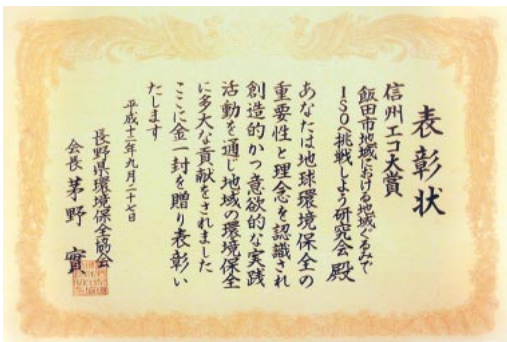 表彰状
信州エコ大賞
飯田市地域における地域ぐるみで
ISOへ挑戦しよう研究会殿
あなたは地球環境保全の
重要性と理念を認識され
創造的かつ意欲的な実践
活動を通じ地域の環境保全
に多大な貢献をされました
ここに金一封を贈り表彰い
たします
平成十二年九月二十七日
長野県環境保全協会
会長 茅野 實